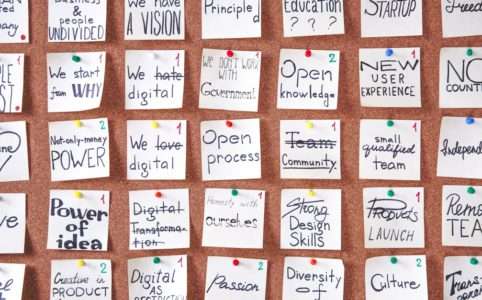 people
UNDIVIDED
We have
a VISION
Principle
Education
? ? ?
STARTUP
We start
from WHY
1
We hate
digital
1
We DON'T WORK
WITH
Government
Open
knowledge
2
NEW
USER
EXPERIENCE
1
NO
COUNT
Not-only-money
POWER
2
We love
digital
1
Open
process
1
Team
Community.
1
small
qualified
team
1
Independ
2
ve
Power
of
idea
1
Digital
Transforma-
tion
1
Honesty with
ourselves
1
Strong
Design
Skills
Products
LAUNCH
1
Remo
TEA
Creative in
PRODUCT
2
Digital
AS
1
Passion
2
Diversity
of
2
Culture
2
Trans-